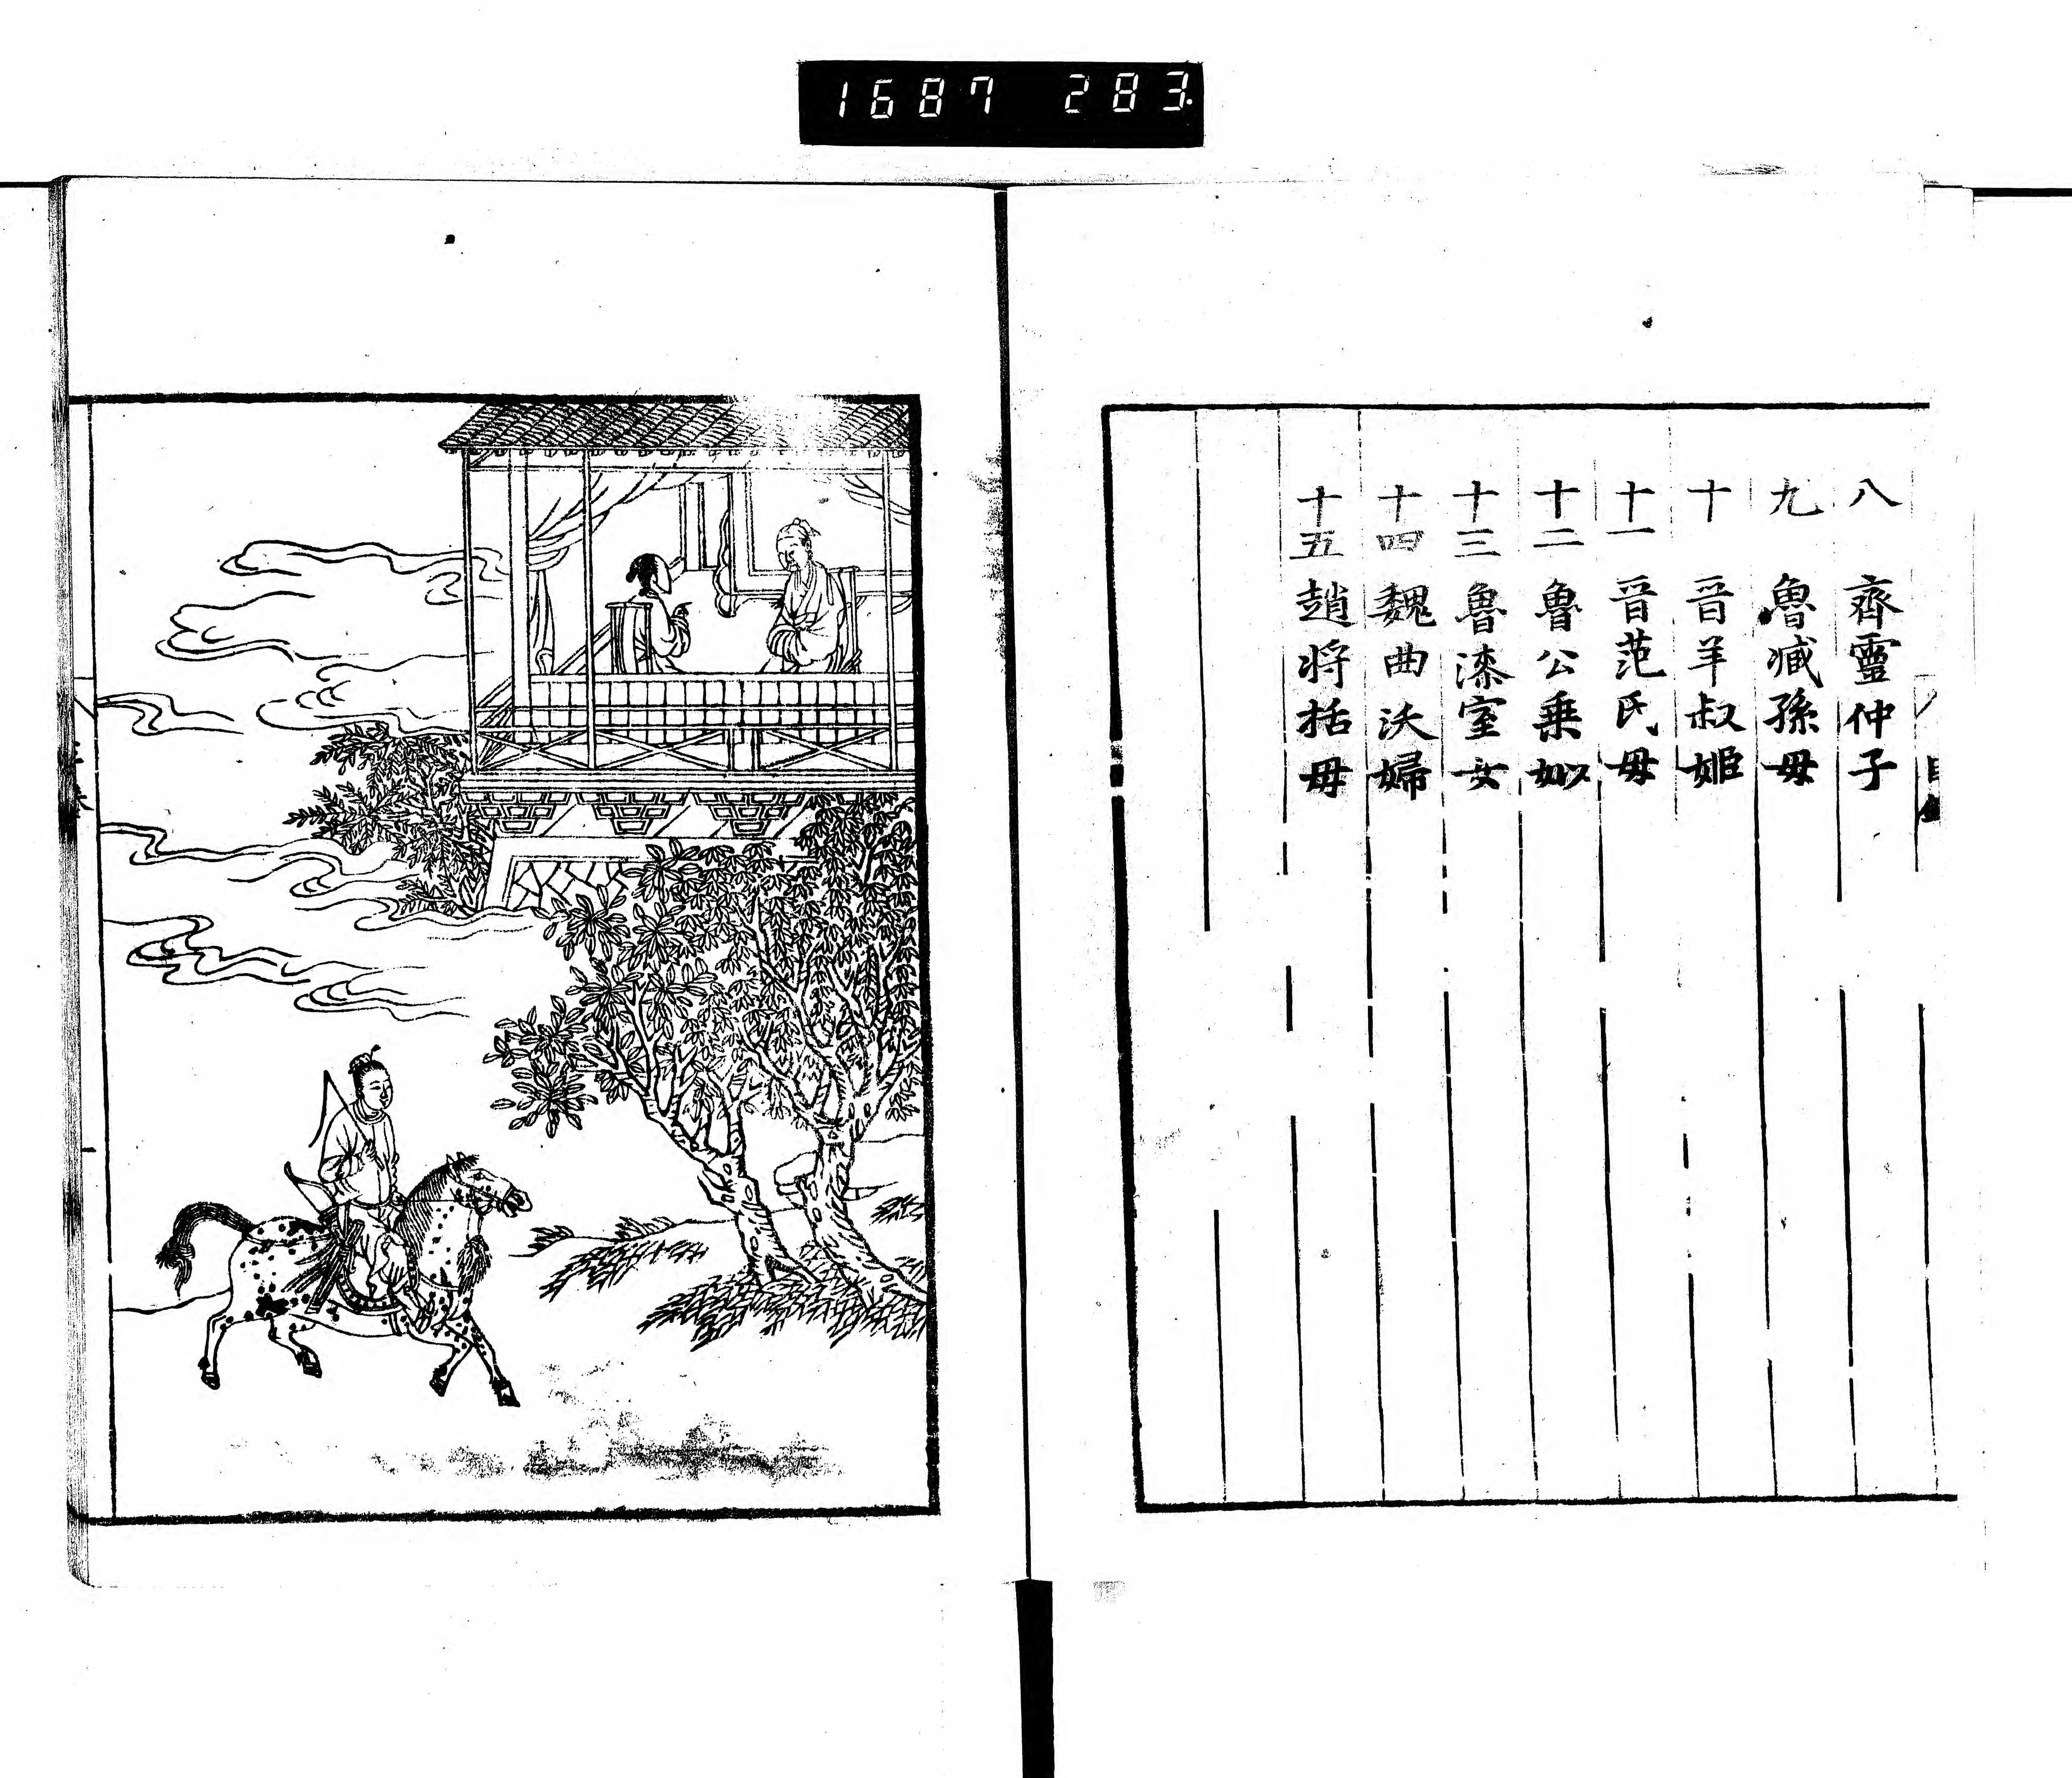 1687 283
八 齊靈仲子
九 魯臧孫母
十 晋羊叔姬
十一 晋范氏母
十二 魯公乗姒
十三 魯漆室女
十四 魏曲沃婦
十五 趙将括母